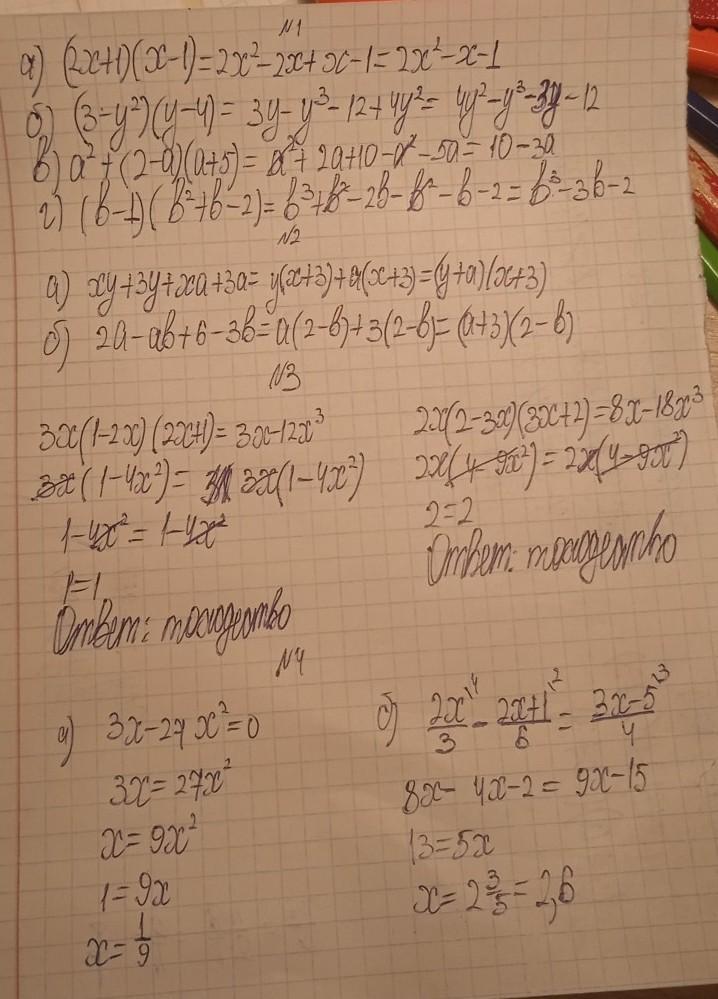 N1
а) (2x+1)(x-1)=2x²-2x+x-1=2x²-x-1
б) (3-y²)(y-4)= 3y-y³-12+4y²= 4y²-y³-3y-12
в) a²+(2-a)(a+5)= a²+2a+10-a²-5a=10-3a
г) (b-1)(b²+b-2)=b³+b²-2b-b²-b-2=b³-3b-2
N2
а) xy+3y+xa+3a= y(x+3)+a(x+3)=(y+a)(x+3)
б) 2a-ab+6-3b=a(2-b)+3(2-b)=(a+3)(2-b)
N3
3x(1-2x)(2x+1)=3x-12x³
3x(1-4x²)= 3x(1-4x²)
1-4x²=1-4x²
1=1
Ответ: тождество
2x(2-3x)(3x+2)=8x-18x³
2x(4-9x²)=2x(4-9x²)
2=2
Ответ: тождество
N4
а) 3x-27x²=0
3x=27x²
x=9x²
1=9x
x=1/9
б) 2x/3 \4 - 2x+1/6 \2 = 3x-5/4 \3
8x-4x-2=9x-15
13=5x
x=2 3/5=2,6